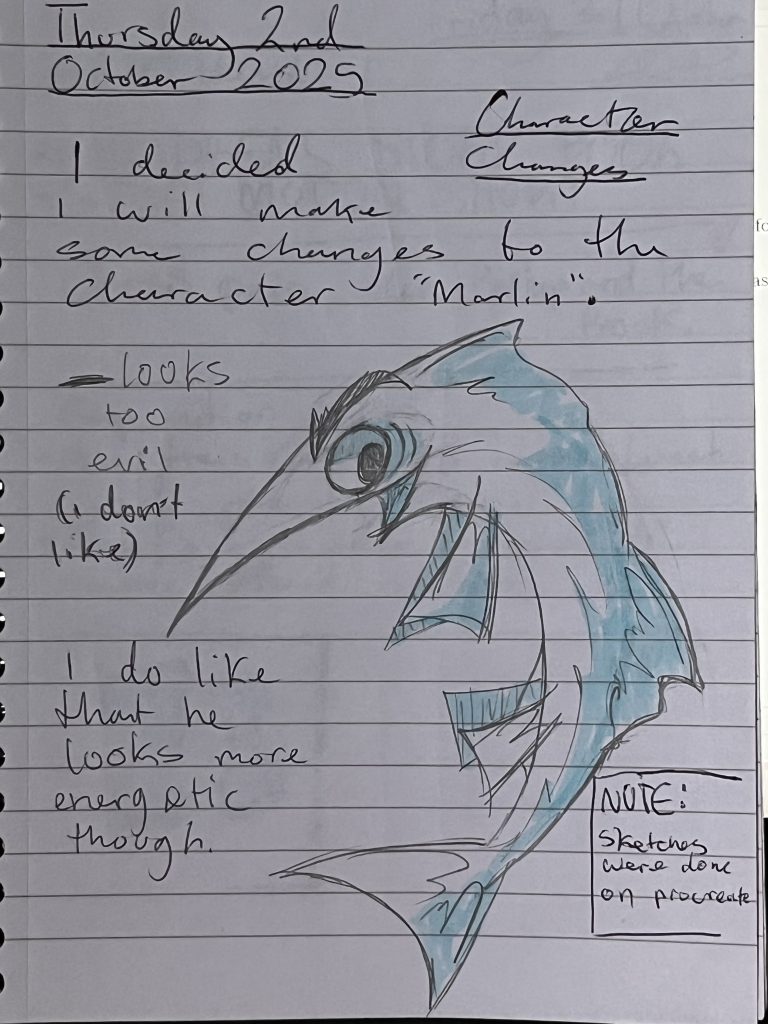 Thursday 2nd
October 2025
Character
Changes
I decided
I will make
some changes to the
Character "Marlin".
- looks
too
evil
(i don't
like)
I do like
that he
looks more
energetic
though.
NOTE:
Sketches
were done
on procreate
fo
as